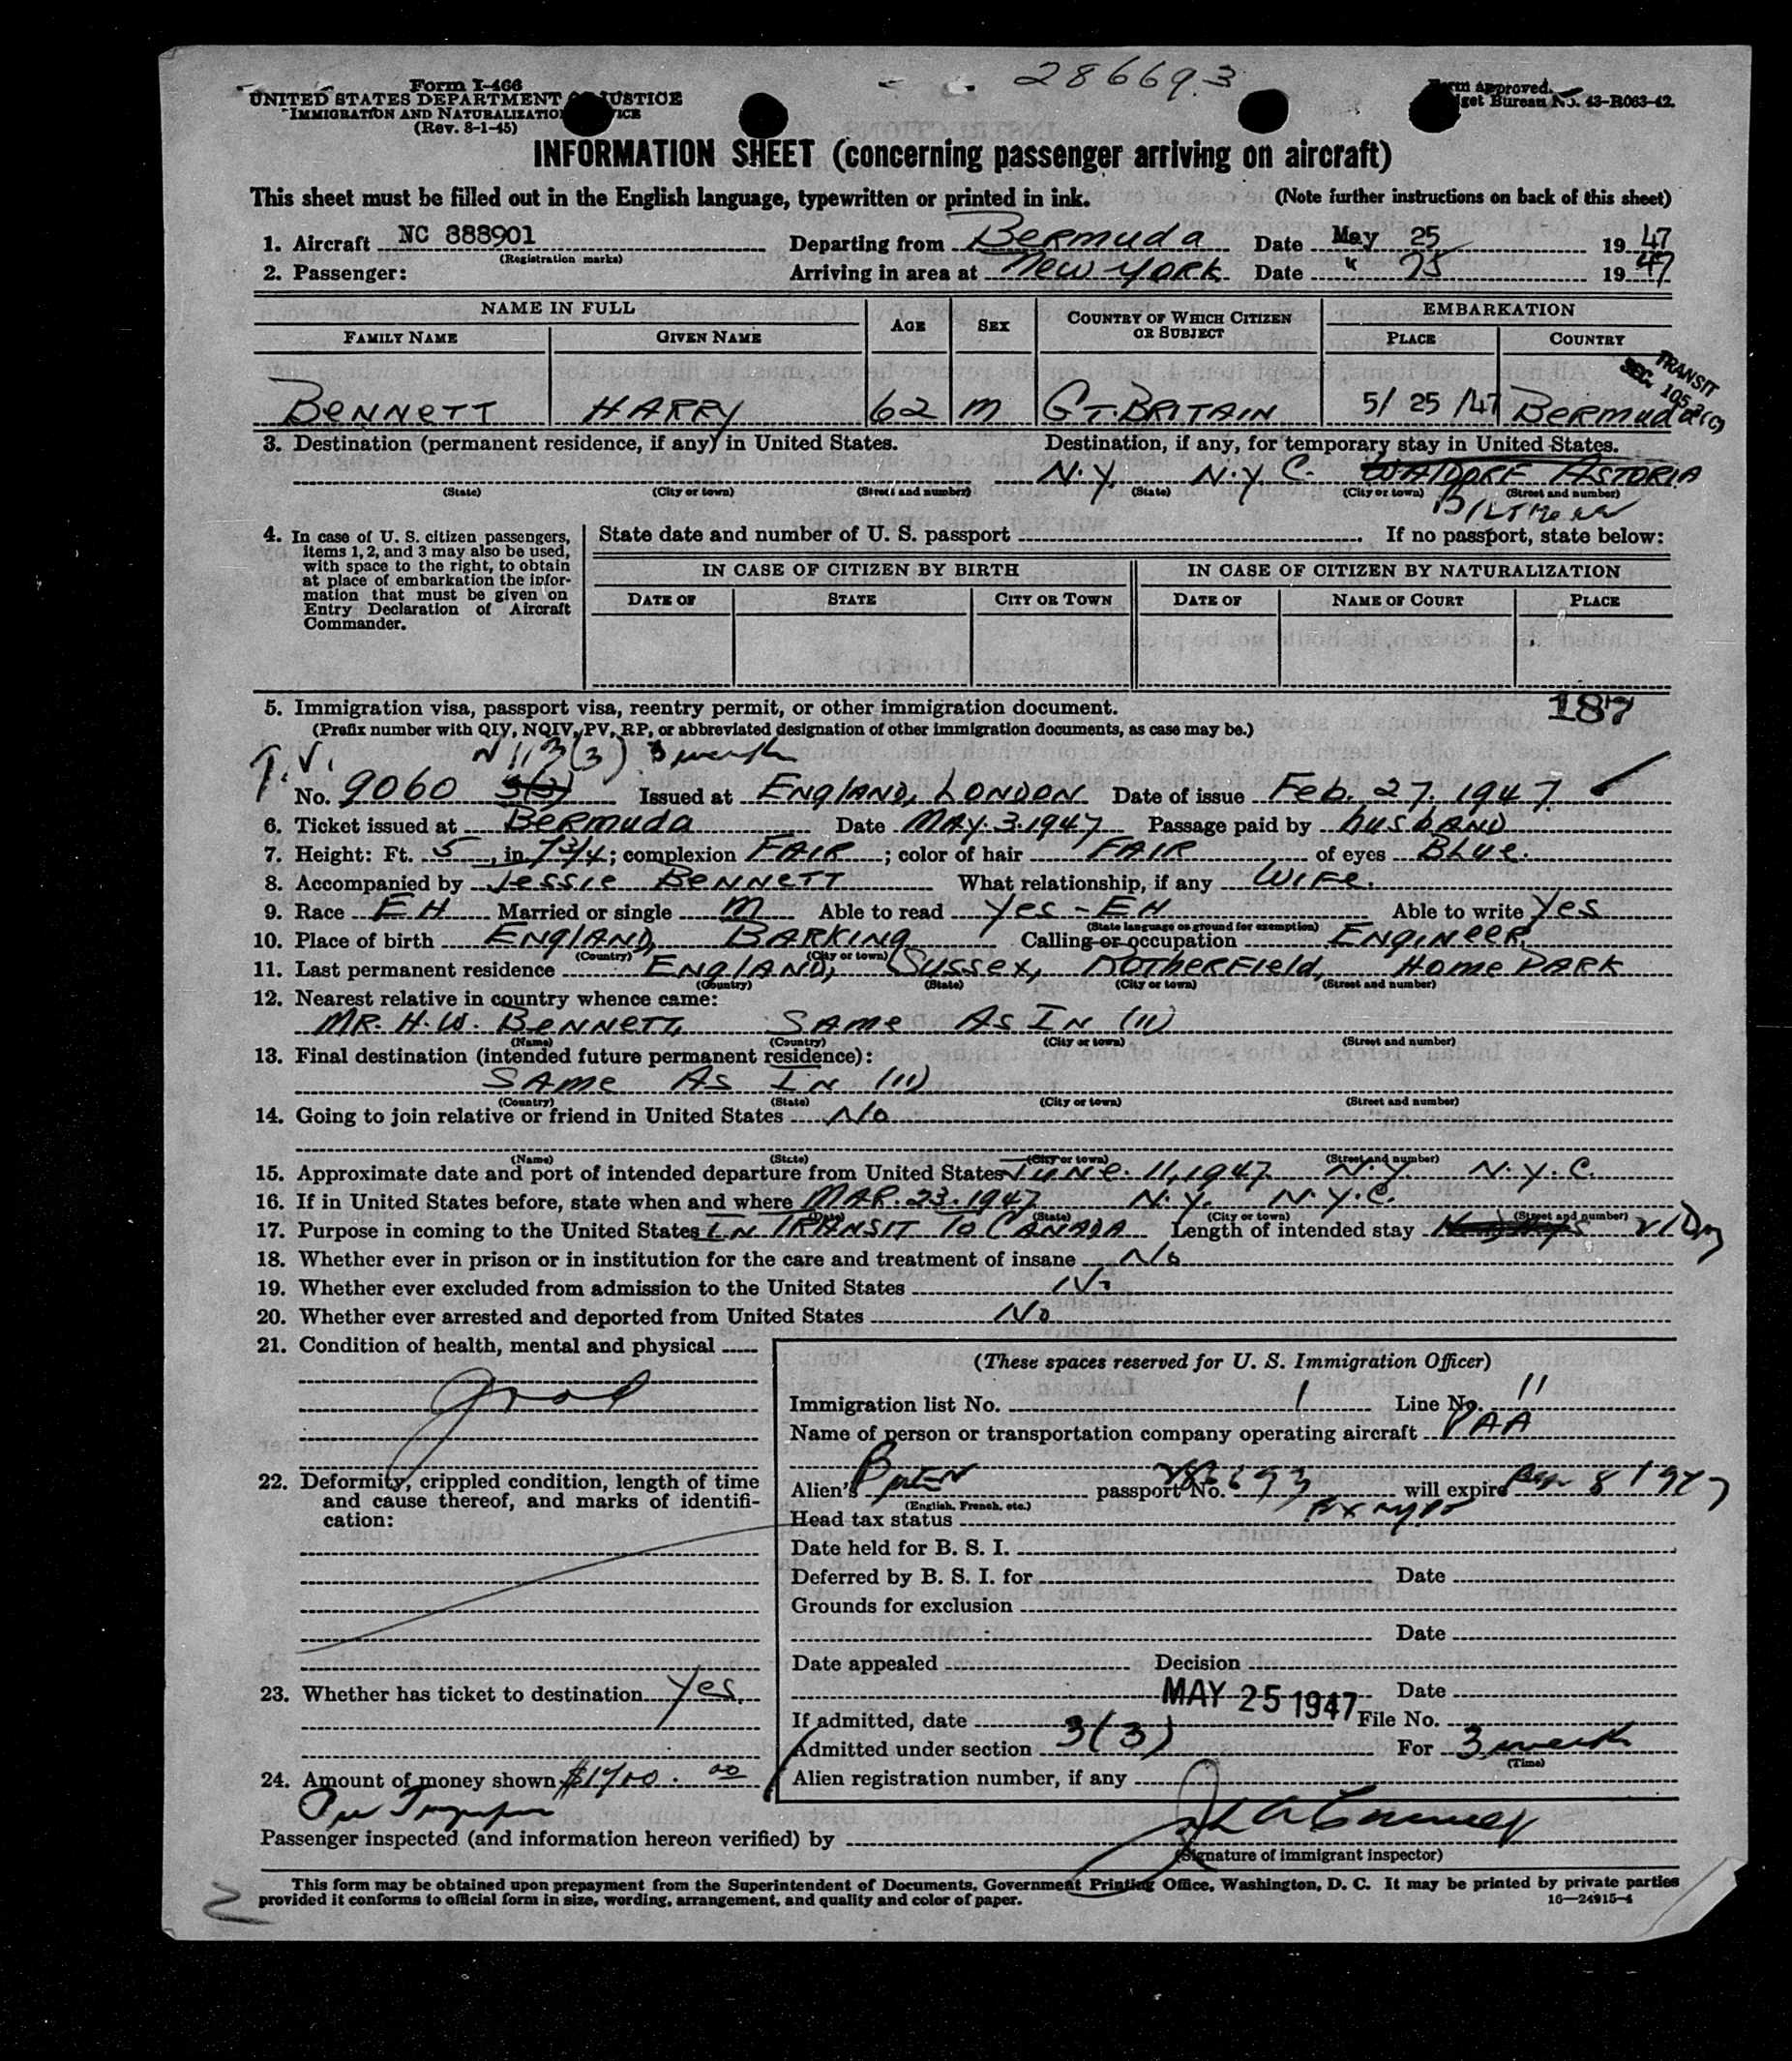 286693
Form I-466
UNITED STATES DEPARTMENT OF JUSTICE
IMMIGRATION AND NATURALIZATION SERVICE
(Rev. 8-1-45)
Form Approved.
Budget Bureau No. 43-R063-42.
INFORMATION SHEET (concerning passenger arriving on aircraft)
This sheet must be filled out in the English language, typewritten or printed in ink. (Note further instructions on back of this sheet)
1. Aircraft NC 888901 Departing from Bermuda Date May 25 1947
(Registration marks)
2. Passenger: Arriving in area at New York Date " 25 1947
NAME IN FULL AGE SEX COUNTRY OF WHICH CITIZEN OR SUBJECT EMBARKATION
FAMILY NAME GIVEN NAME PLACE COUNTRY
TRANSIT
SEC. 105.3(c)
BENNETT HARRY 62 M GT. BRITAIN 5/25/47 BERMUDA
3. Destination (permanent residence, if any) in United States. Destination, if any, for temporary stay in United States.
N.Y. N.Y.C. WALDORF ASTORIA
(State) (City or town) (Street and number) (State) (City or town) (Street and number)
4. In case of U. S. citizen passengers, items 1, 2, and 3 may also be used, with space to the right, to obtain at place of embarkation the information that must be given on Entry Declaration of Aircraft Commander.
State date and number of U. S. passport If no passport, state below:
IN CASE OF CITIZEN BY BIRTH IN CASE OF CITIZEN BY NATURALIZATION
DATE OF STATE CITY OR TOWN DATE OF NAME OF COURT PLACE
187
5. Immigration visa, passport visa, reentry permit, or other immigration document.
(Prefix number with QIV, NQIV, PV, RP, or abbreviated designation of other immigration documents, as case may be.)
T.V.
No. 9060 3(3) Issued at ENGLAND, LONDON Date of issue Feb. 27, 1947.
6. Ticket issued at BERMUDA Date MAY. 3. 1947 Passage paid by HUSBAND
7. Height: Ft. 5, in. 7 3/4; complexion FAIR; color of hair FAIR of eyes BLUE.
8. Accompanied by Jessie BENNETT What relationship, if any WIFE.
9. Race EH Married or single M Able to read Yes - EH Able to write Yes
(State language or ground for exemption)
10. Place of birth ENGLAND, BARKING Calling or occupation ENGINEER.
(Country) (City or town)
11. Last permanent residence ENGLAND, SUSSEX, ROTHERFIELD, HOME PARK
(Country) (State) (City or town) (Street and number)
12. Nearest relative in country whence came:
MR. H. W. BENNETT, SAME AS IN (11)
(Name) (Country) (City or town) (Street and number)
13. Final destination (intended future permanent residence):
SAME AS IN (11)
(Country) (State) (City or town) (Street and number)
14. Going to join relative or friend in United States No
(Name) (State) (City or town) (Street and number)
15. Approximate date and port of intended departure from United States JUNE. 11, 1947 N.Y. N.Y.C.
16. If in United States before, state when and where MAR. 23. 1947 N.Y. N.Y.C.
(Date) (State) (City or town) (Street and number)
17. Purpose in coming to the United States IN TRANSIT TO CANADA Length of intended stay 21 Day
18. Whether ever in prison or in institution for the care and treatment of insane No
19. Whether ever excluded from admission to the United States No
20. Whether ever arrested and deported from United States No
21. Condition of health, mental and physical
good
22. Deformity, crippled condition, length of time and cause thereof, and marks of identification:
23. Whether has ticket to destination Yes.
24. Amount of money shown
(These spaces reserved for U. S. Immigration Officer)
Immigration list No. 1 Line No. 11
Name of person or transportation company operating aircraft PAA
Alien's passport No. 286693 will expire 8 1947
(English, French, etc.)
Head tax status Exempt
Date held for B. S. I.
Deferred by B. S. I. for Date
Grounds for exclusion
Date
Date appealed Decision
Date
If admitted, date MAY 25 1947 File No.
Admitted under section 3(3) For 3 week
(Time)
Alien registration number, if any
Passenger inspected (and information hereon verified) by
(Signature of immigrant inspector)
This form may be obtained upon prepayment from the Superintendent of Documents, Government Printing Office, Washington, D. C. It may be printed by private parties
provided it conforms to official form in size, wording, arrangement, and quality and color of paper. 16—24915-4